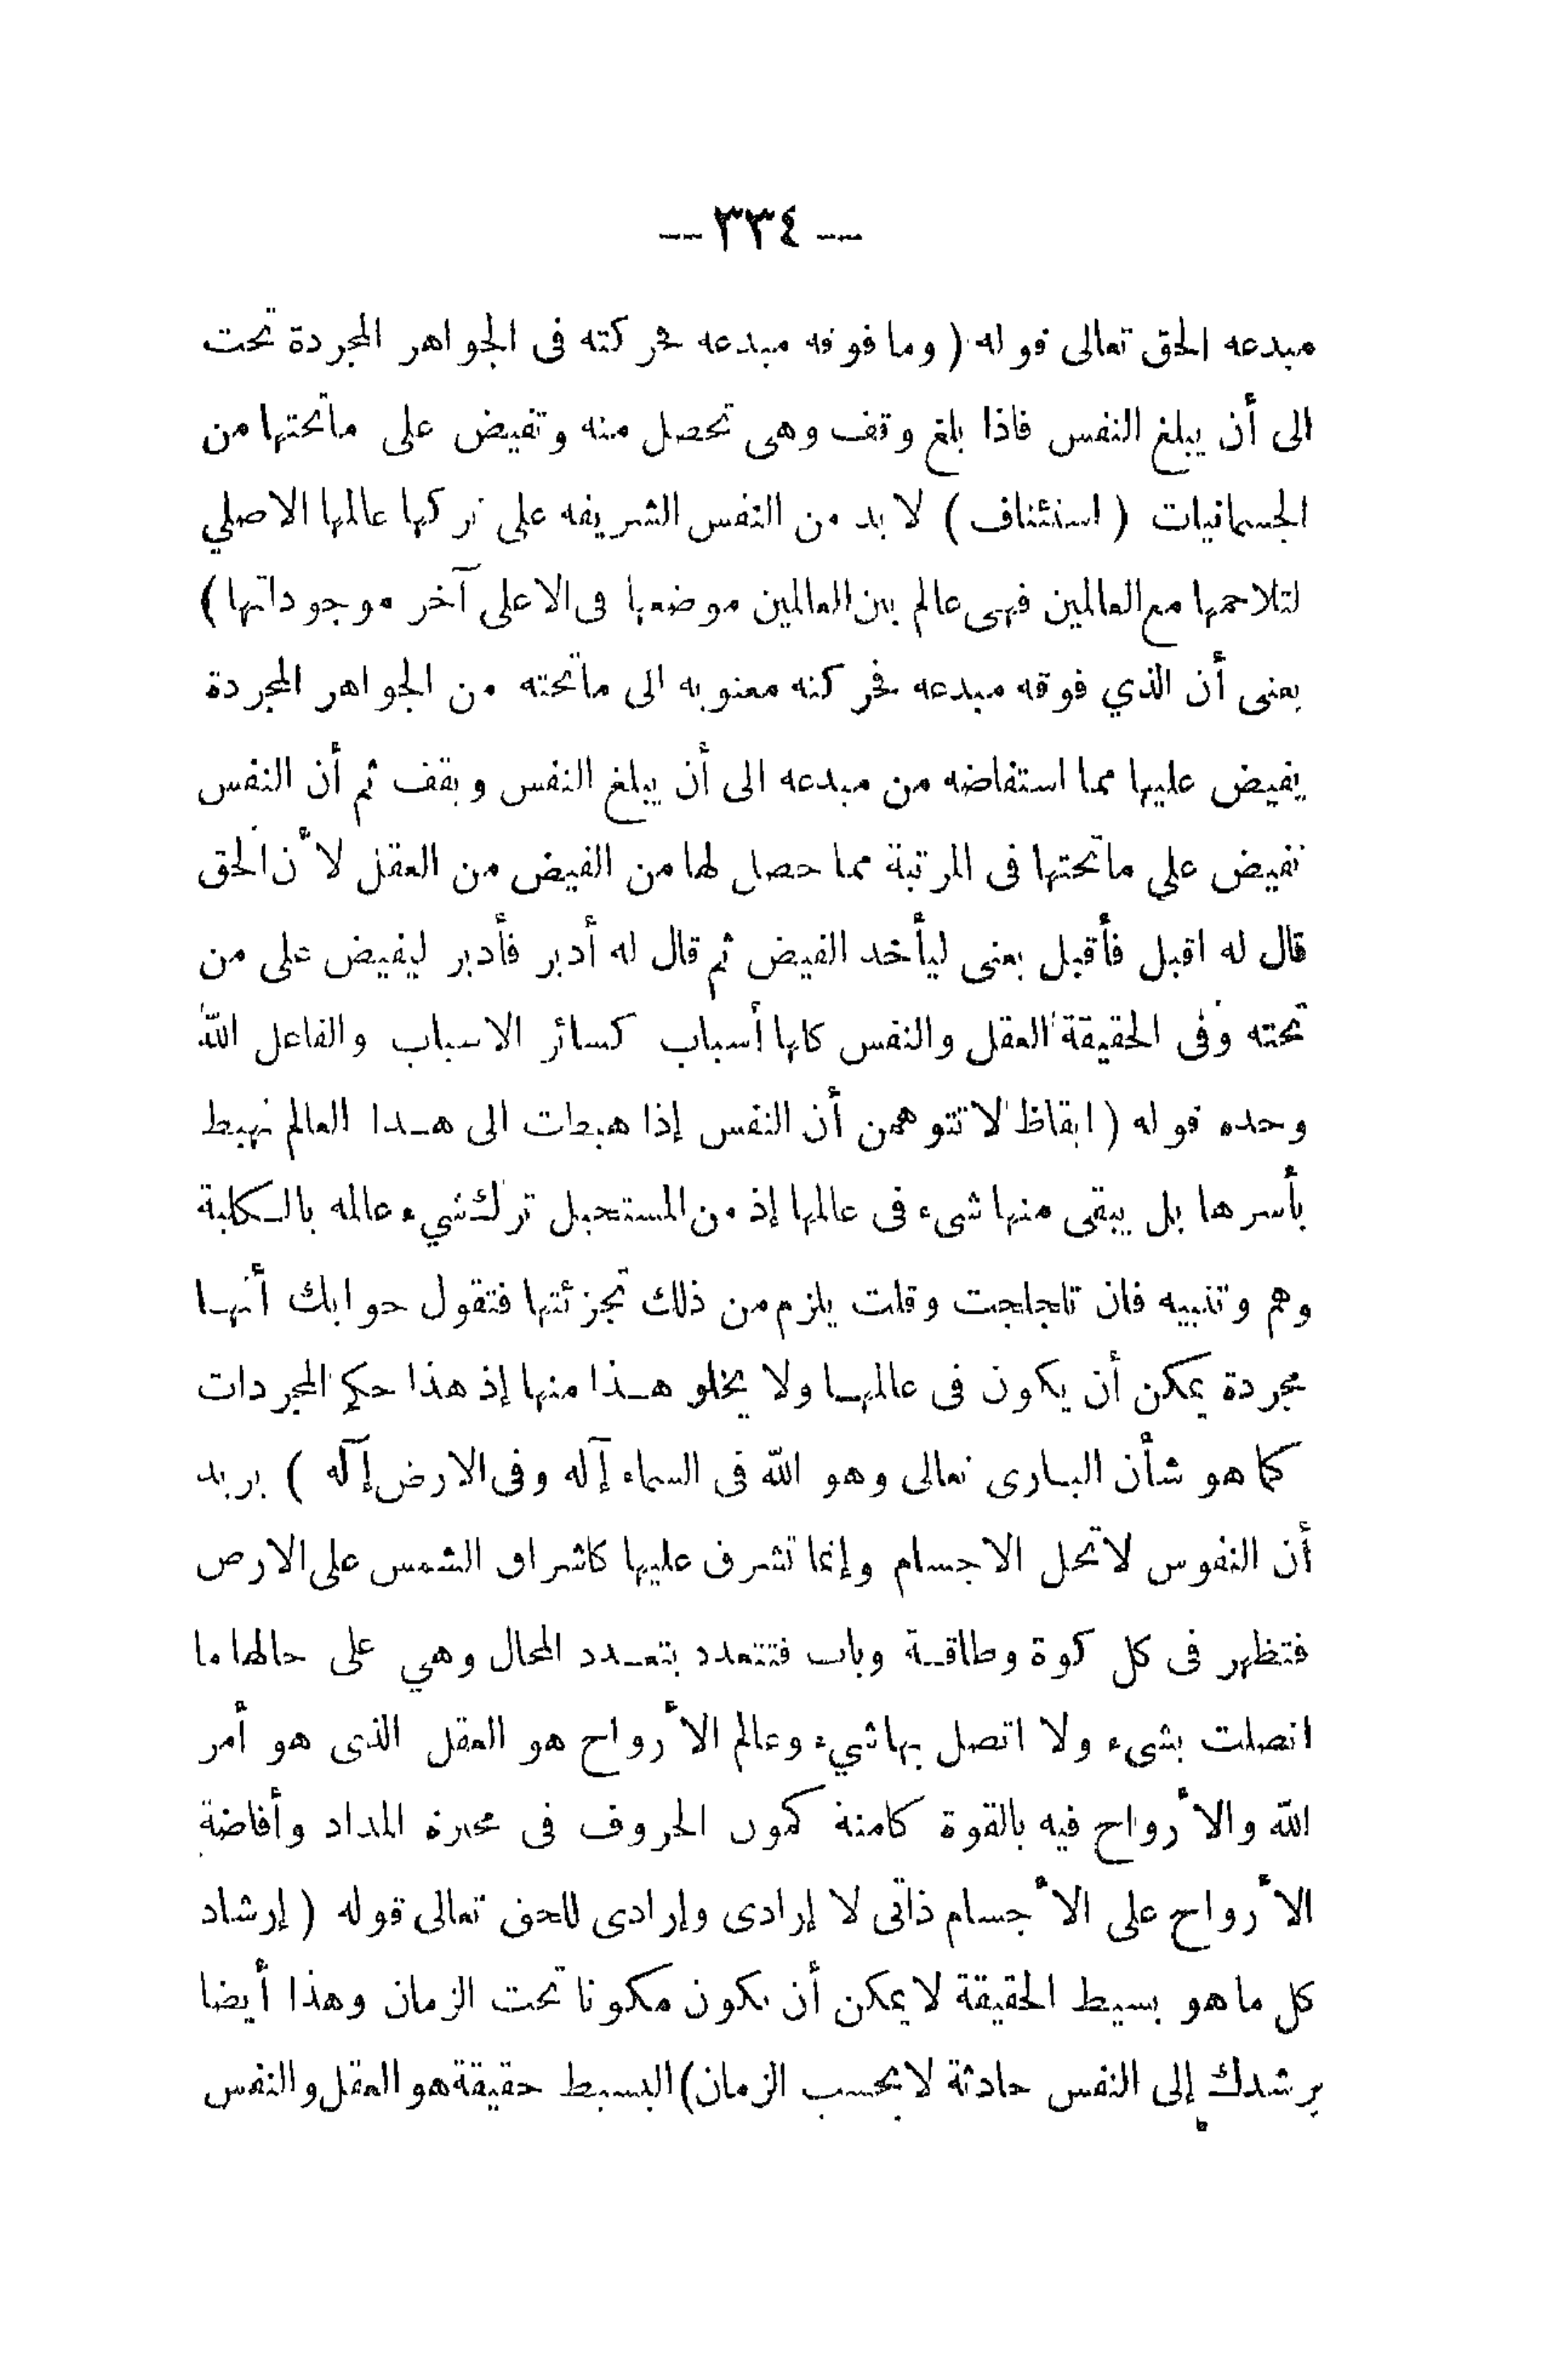 — ٣٣٤ —
مبدعه الحق تعالى قوله ( وما فوقه مبدعه فحركته فى الجواهر المجردة تحت
الى أن يبلغ النفس فاذا بلغ وقف وهى تحصل منه وتفيض على ماتحتها من
الجسمانيات ( استئناف ) لا بد من النفس الشريفه على تركها عالمها الاصلي
لتلاحمها مع العالمين فهى عالم بين العالمين موضعها فى الاعلى آخر موجوداتها )
يعنى أن الذي فوقه مبدعه فحركته معنويه الى ماتحته من الجواهر المجردة
يفيض عليها مما استفاضه من مبدعه الى أن يبلغ النفس ويقف ثم أن النفس
تفيض على ماتحتها فى المرتبة مما حصل لها من الفيض من العقل لأن الحق
قال له اقبل فأقبل يعنى ليأخد الفيض ثم قال له أدبر فأدبر ليفيض على من
تحته وفى الحقيقة العقل والنفس كلها أسباب كسائر الاسباب والفاعل الله
وحده قوله ( ايقاظ لا تتوهمن أن النفس إذا هبطت الى هـدا العالم تهبط
بأسرها بل يبقى منها شىء فى عالمها إذ من المستحيل ترك شيء عالمه بالـكلية
وهم وتنبيه فان تلجلجت وقلت يلزم من ذلك تجزئتها فتقول حوابك أنهـا
مجردة يمكن أن يكون فى عالمهـا ولا يخلو هـذا منها إذ هذا حكم المجردات
كما هو شأن البـارى تعالى وهو الله فى السماء إآله وفى الارض إآله ) يريد
أن النفوس لاتحل الاجسام وإنما تشرف عليها كاشراق الشمس على الارص
فتظهر فى كل كوة وطاقـة وباب فتتعدد بتعـدد المحال وهي على حالها ما
اتصلت بشىء ولا اتصل بها شيء وعالم الأرواح هو العقل الذى هو أمر
الله والأرواح فيه بالقوة كامنة كمون الحروف فى محبرة المداد وأفاضة
الأرواح على الأجسام ذاتى لا إرادى وإرادى للحق تعالى قوله ( إرشاد
كل ماهو بسيط الحقيقة لايمكن أن يكون مكونا تحت الزمان وهذا أيضا
يرشدك إلى النفس حادثة لابحسب الزمان) البسيط حقيقة هو العقل والنفس